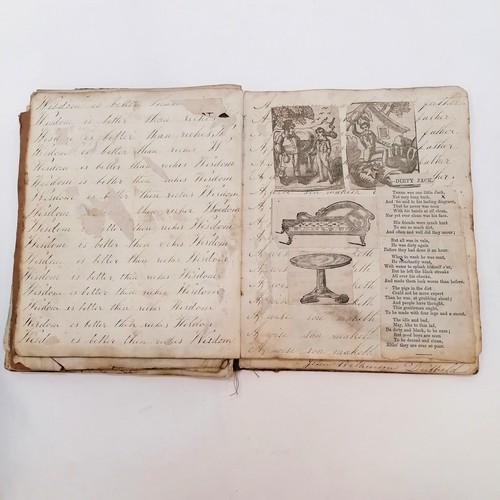 Wisdom is better
Wisdom is better than riches
Wisdom is better than riches
Wisdom is better than riches W
Wisdom is better than riches Wisdome
Wisdom is better than riches Wisdom
Wisdom is better than riches Wisdom
Wisdom is better than riches Wisdom
Wisdom is better than riches Wisdom
Wisdom is better than riches Wisdom
Wisdom is better than riches Wisdom
Wisdom is better than riches Wisdom
Wisdom is better than riches Wisdom
Wisdom is better than riches Wisdom
Wisdom is better than riches
Wisdom is better than riches Wisdom
A father
A father
A father
A father
A father
A wise son maketh
DIRTY JACK.
There was one little Jack,
Not very long back,
And 'tis said to his lasting disgrace,
That he never was seen
With his hands at all clean,
Nor yet ever clean was his face.
His friends were much hurt
To see so much dirt,
And often and well did they scour;
But all was in vain,
He was dirty again
Before they had done it an hour.
When to wash he was sent,
He reluctantly went,
With water to splash himself o'er,
But he left the black streaks
All over his cheeks,
And made them look worse than before.
The pigs in the dirt
Could not be more expert
Than he was, at grubbing about;
And people have thought
This gentleman ought,
To be made with four legs and a snout.
The idle and bad,
May, like to this lad,
Be dirty and black, to be sure;
But good boys are seen
To be decent and clean,
Altho' they are ever so poor.
A wise son maketh
A wise son maketh
A wise son maketh